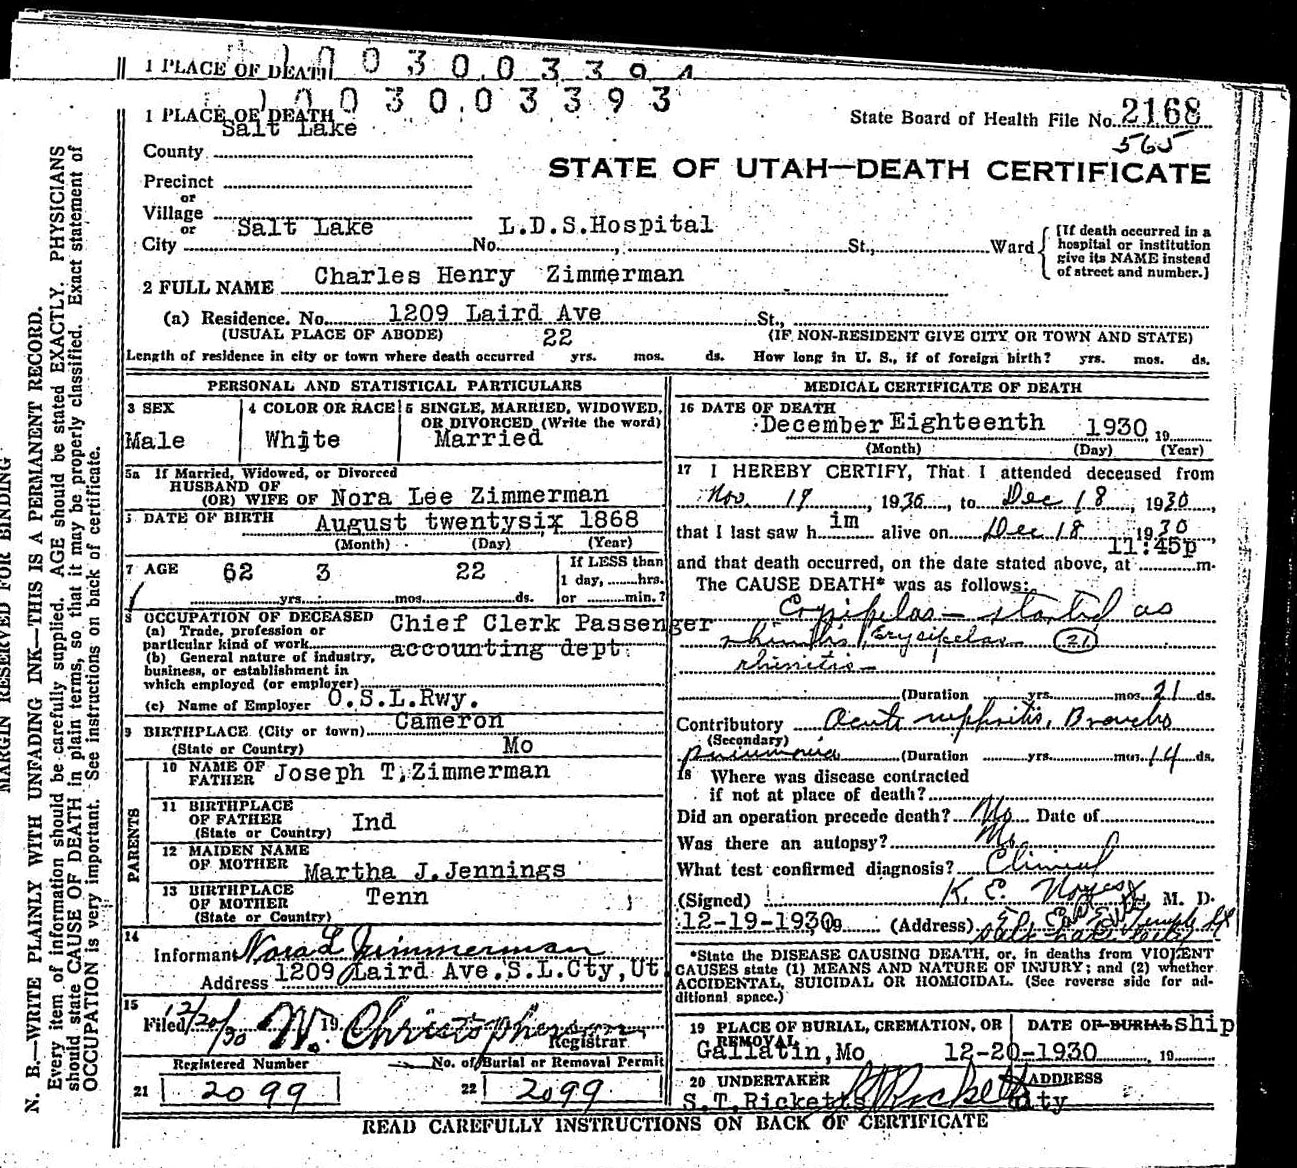 1 PLACE OF DEATH
1003003394
1003003393
1 PLACE OF DEATH
State Board of Health File No. 2168
565
Salt Lake
County
STATE OF UTAH—DEATH CERTIFICATE
Precinct
or
Village
or
City Salt Lake No. L.D.S.Hospital St., Ward
[If death occurred in a hospital or institution give its NAME instead of street and number.]
2 FULL NAME Charles Henry Zimmerman
(a) Residence. No. 1209 Laird Ave St.,
(USUAL PLACE OF ABODE) (IF NON-RESIDENT GIVE CITY OR TOWN AND STATE)
Length of residence in city or town where death occurred 22 yrs. mos. ds. How long in U. S., if of foreign birth? yrs. mos. ds.
PERSONAL AND STATISTICAL PARTICULARS
3 SEX Male
4 COLOR OR RACE White
5 SINGLE, MARRIED, WIDOWED, OR DIVORCED (Write the word) Married
5a If Married, Widowed, or Divorced
HUSBAND OF
(OR) WIFE OF Nora Lee Zimmerman
DATE OF BIRTH August twentysix 1868
(Month) (Day) (Year)
7 AGE 62 yrs. 3 mos. 22 ds.
If LESS than 1 day, hrs. or min.?
8 OCCUPATION OF DECEASED
(a) Trade, profession or particular kind of work Chief Clerk Passenger accounting dept
(b) General nature of industry, business, or establishment in which employed (or employer)
(c) Name of Employer O.S.L.Rwy.
9 BIRTHPLACE (City or town) Cameron
(State or Country) Mo
PARENTS
10 NAME OF FATHER Joseph T. Zimmerman
11 BIRTHPLACE OF FATHER (State or Country) Ind
12 MAIDEN NAME OF MOTHER Martha J.Jennings
13 BIRTHPLACE OF MOTHER (State or Country) Tenn
14 Informant Nora L Zimmerman
Address 1209 Laird Ave.S.L.Cty,Ut
15 Filed 12/20/30 19 W. Christopherson
Registrar
Registered Number
21 2099
No. of Burial or Removal Permit
22 2099
MEDICAL CERTIFICATE OF DEATH
16 DATE OF DEATH
December Eighteenth 1930 19
(Month) (Day) (Year)
17 I HEREBY CERTIFY, That I attended deceased from
Nov. 19, 1930, to Dec 18, 1930
that I last saw him alive on Dec 18 1930
and that death occurred, on the date stated above, at 11:45p m.
The CAUSE DEATH* was as follows:
Erysipelas — started as
rhinitis Erysipelas 21
rhinitis —
(Duration yrs. mos. 21 ds.
Contributory Acute nephritis, Broncho
(Secondary)
pneumonia (Duration yrs. mos. 14 ds.
18 Where was disease contracted
if not at place of death?
Did an operation precede death? No Date of
Was there an autopsy? No
What test confirmed diagnosis? Clinical
(Signed) K. E. Noyes, M. D.
12-19-1930 (Address)
Salt Lake City
*State the DISEASE CAUSING DEATH, or, in deaths from VIOLENT
CAUSES state (1) MEANS AND NATURE OF INJURY; and (2) whether
ACCIDENTAL, SUICIDAL OR HOMICIDAL. (See reverse side for additional space.)
19 PLACE OF BURIAL, CREMATION, OR REMOVAL
Gallatin,Mo
DATE OF BURIAL ship
12-20-1930, 19
20 UNDERTAKER
S.T.Ricketts
ADDRESS
City
READ CAREFULLY INSTRUCTIONS ON BACK OF CERTIFICATE
MARGIN RESERVED FOR BINDING
N. B.—WRITE PLAINLY WITH UNFADING INK—THIS IS A PERMANENT RECORD.
Every item of information should be carefully supplied. AGE should be stated EXACTLY. PHYSICIANS
should state CAUSE OF DEATH in plain terms, so that it may be properly classified. Exact statement of
OCCUPATION is very important. See instructions on back of certificate.